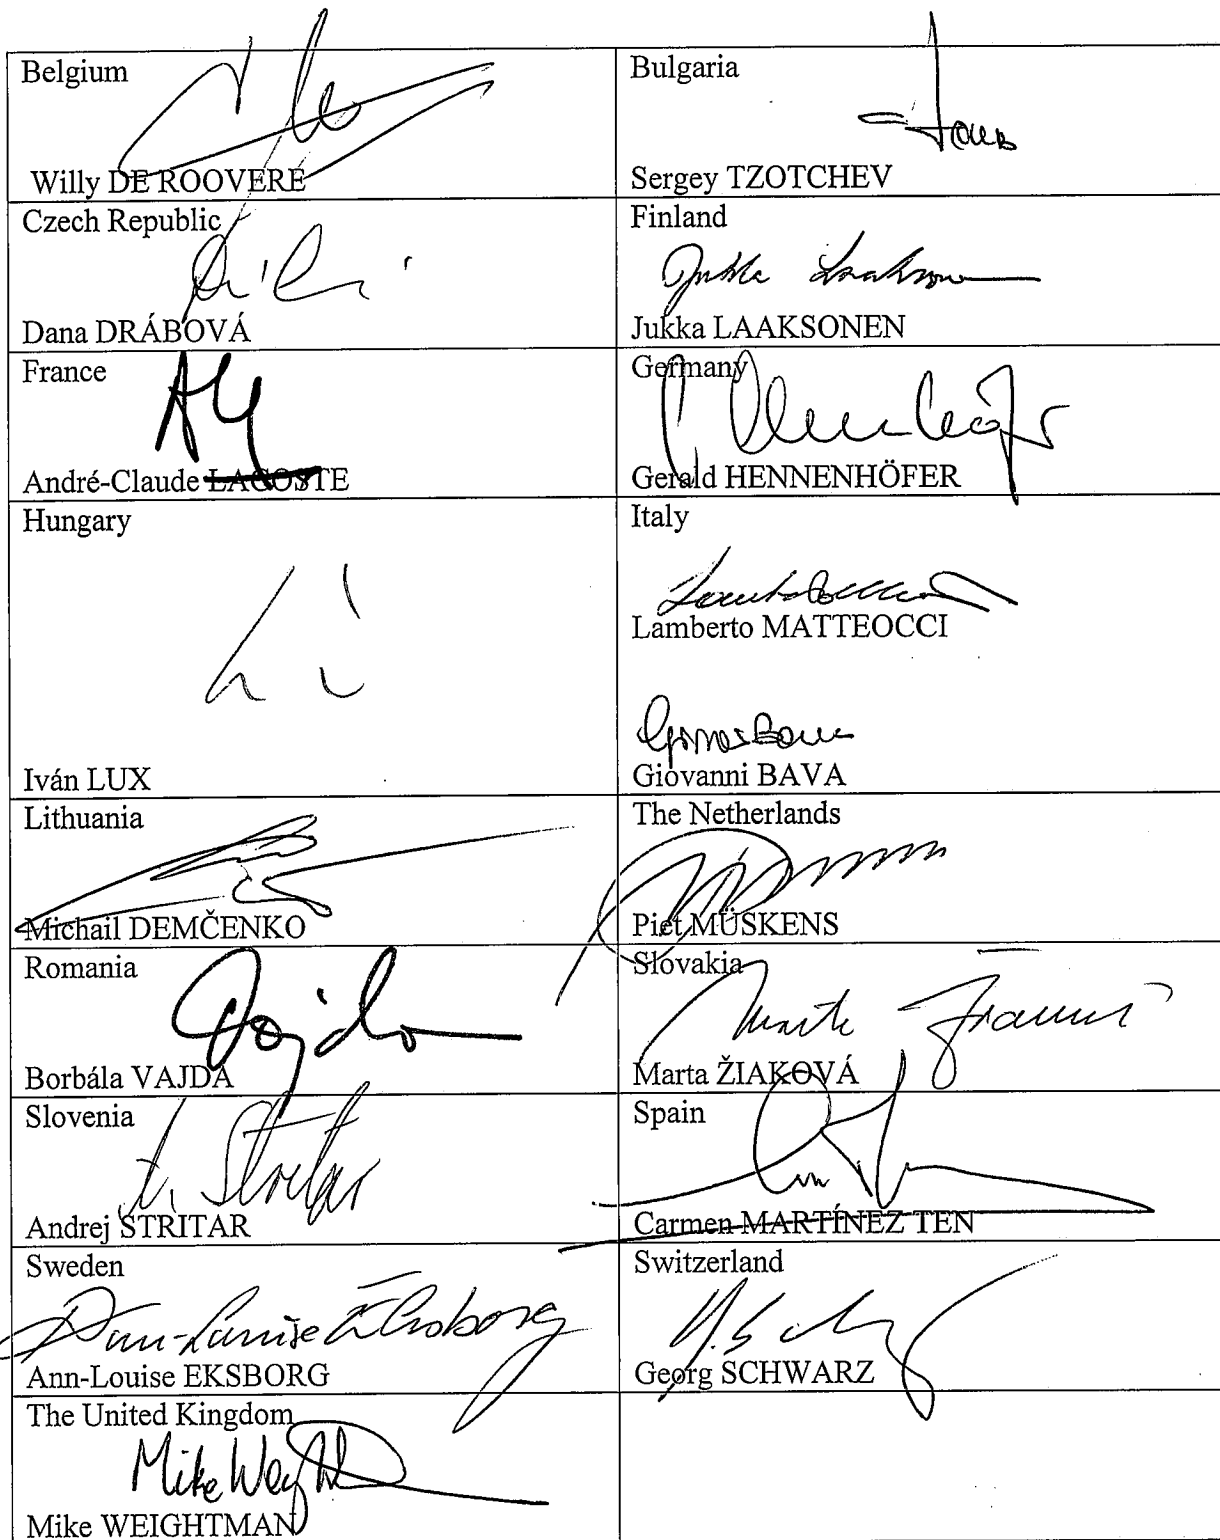 Belgium
Willy DE ROOVERE
Bulgaria
Sergey TZOTCHEV
Czech Republic
Dana DRÁBOVÁ
Finland
Jukka Laaksonen
Jukka LAAKSONEN
France
André-Claude LACOSTE
Germany
Gerald HENNENHÖFER
Hungary
Iván LUX
Italy
Lamberto MATTEOCCI
Giovanni BAVA
Lithuania
Michail DEMČENKO
The Netherlands
Piet MÜSKENS
Romania
Borbála VAJDA
Slovakia
Marta ŽIAKOVÁ
Slovenia
A. Stritar
Andrej STRITAR
Spain
Carmen MARTÍNEZ TEN
Sweden
Ann-Louise Eksborg
Ann-Louise EKSBORG
Switzerland
Georg SCHWARZ
The United Kingdom
Mike Weightman
Mike WEIGHTMAN